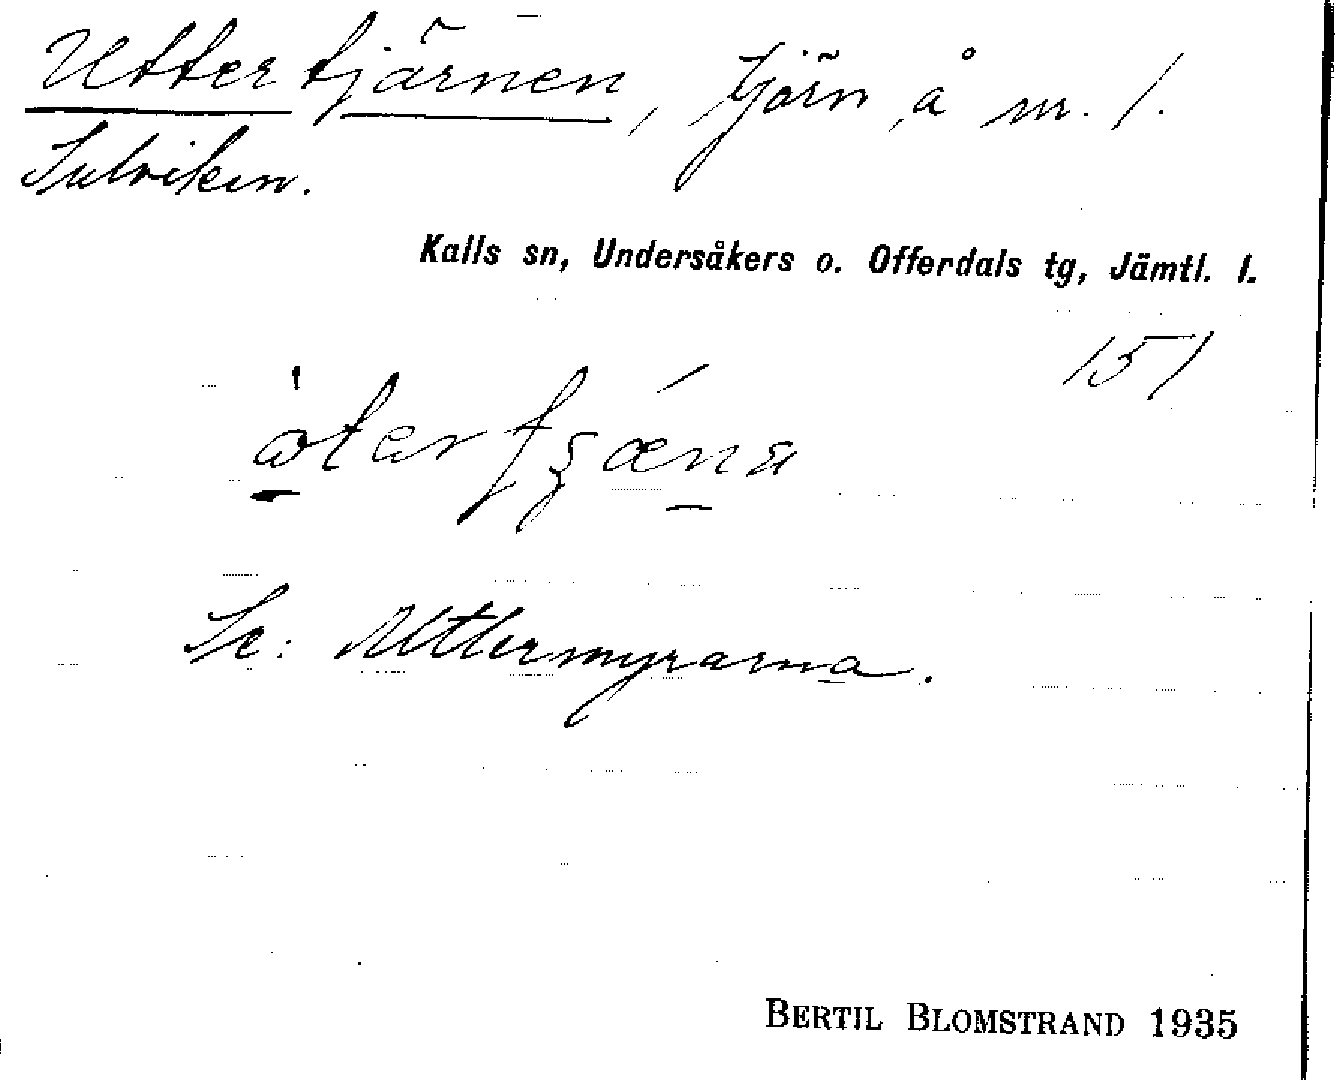 Uttertjärnen, tjärn å nr. 1.
Sulviken.
Kalls sn, Undersåkers o. Offerdals tg, Jämtl. l.
151
Se: Uttermyrarna.
BERTIL BLOMSTRAND 1935